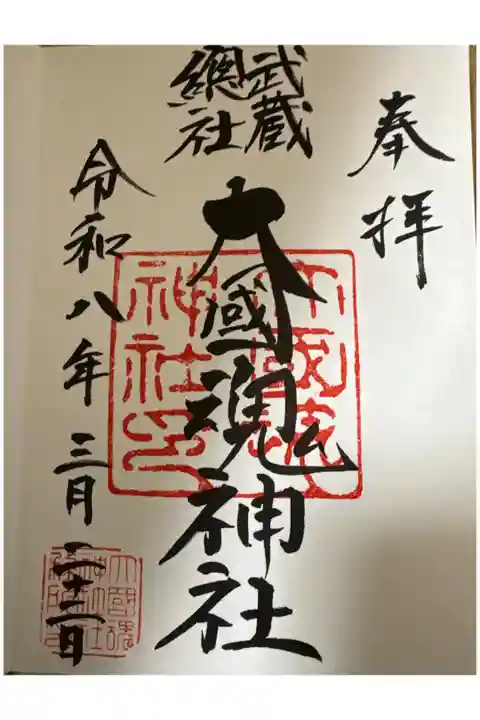 奉拝
武蔵
總社
大國魂神社
令和八年三月二十二日
大國魂
神社印